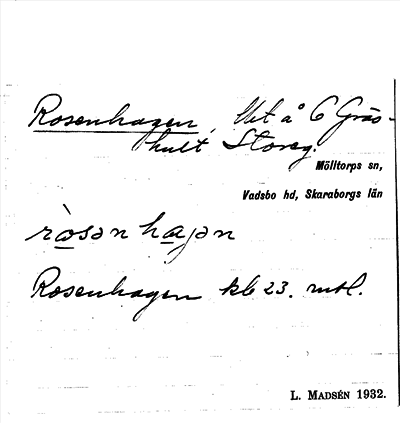 Rosenhagen, Ut å 6 Gräs-
hult Storeg.
Mölltorps sn,
Vadsbo hd, Skaraborgs län
ròsən hagən
Rosenhagen kb 23. mtl.
L. MADSÉN 1932.